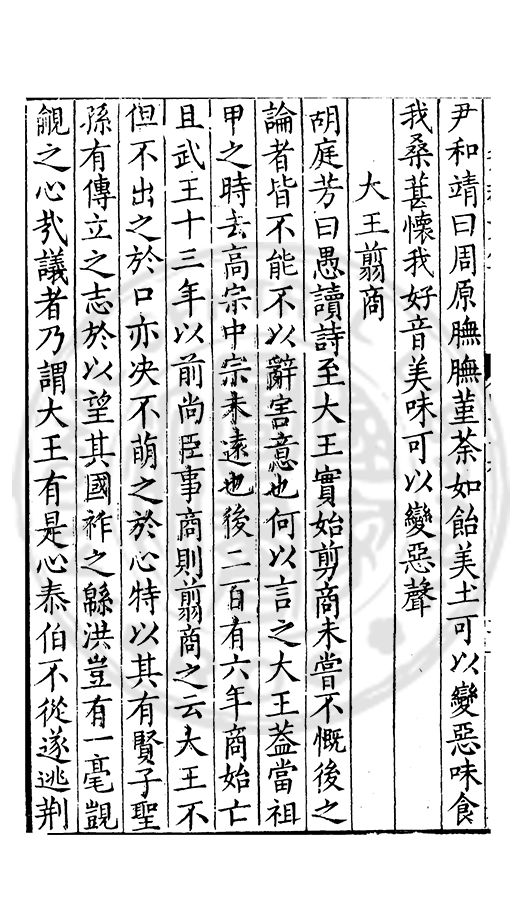 尹和靖曰周原膴膴堇荼如飴美土可以變惡味食
我桑葚懷我好音美味可以變惡聲
大王翦商
胡庭芳曰愚讀詩至大王實始剪商未嘗不慨後之
論者皆不能不以辭害意也何以言之大王葢當祖
甲之時去高宗中宗未遠也後二百有六年商始亡
且武王十三年以前尚臣事商則翦商之云大王不
但不出之於口亦决不萌之於心特以其有賢子聖
孫有傳立之志於以望其國祚之緜洪豈有一毫覬
覦之心㢤議者乃謂大王有是心泰伯不從遂逃荆